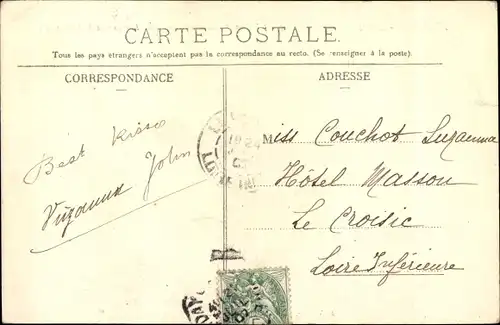 CARTE POSTALE.
Tous les pays étrangers n'acceptent pas la correspondance au recto. (Se renseigner à la poste).
CORRESPONDANCE
ADRESSE
Best Kisses
Suzanna John
Miss Couchot Suzanna
Hôtel Masson
Le Croisic
Loire Inférieure